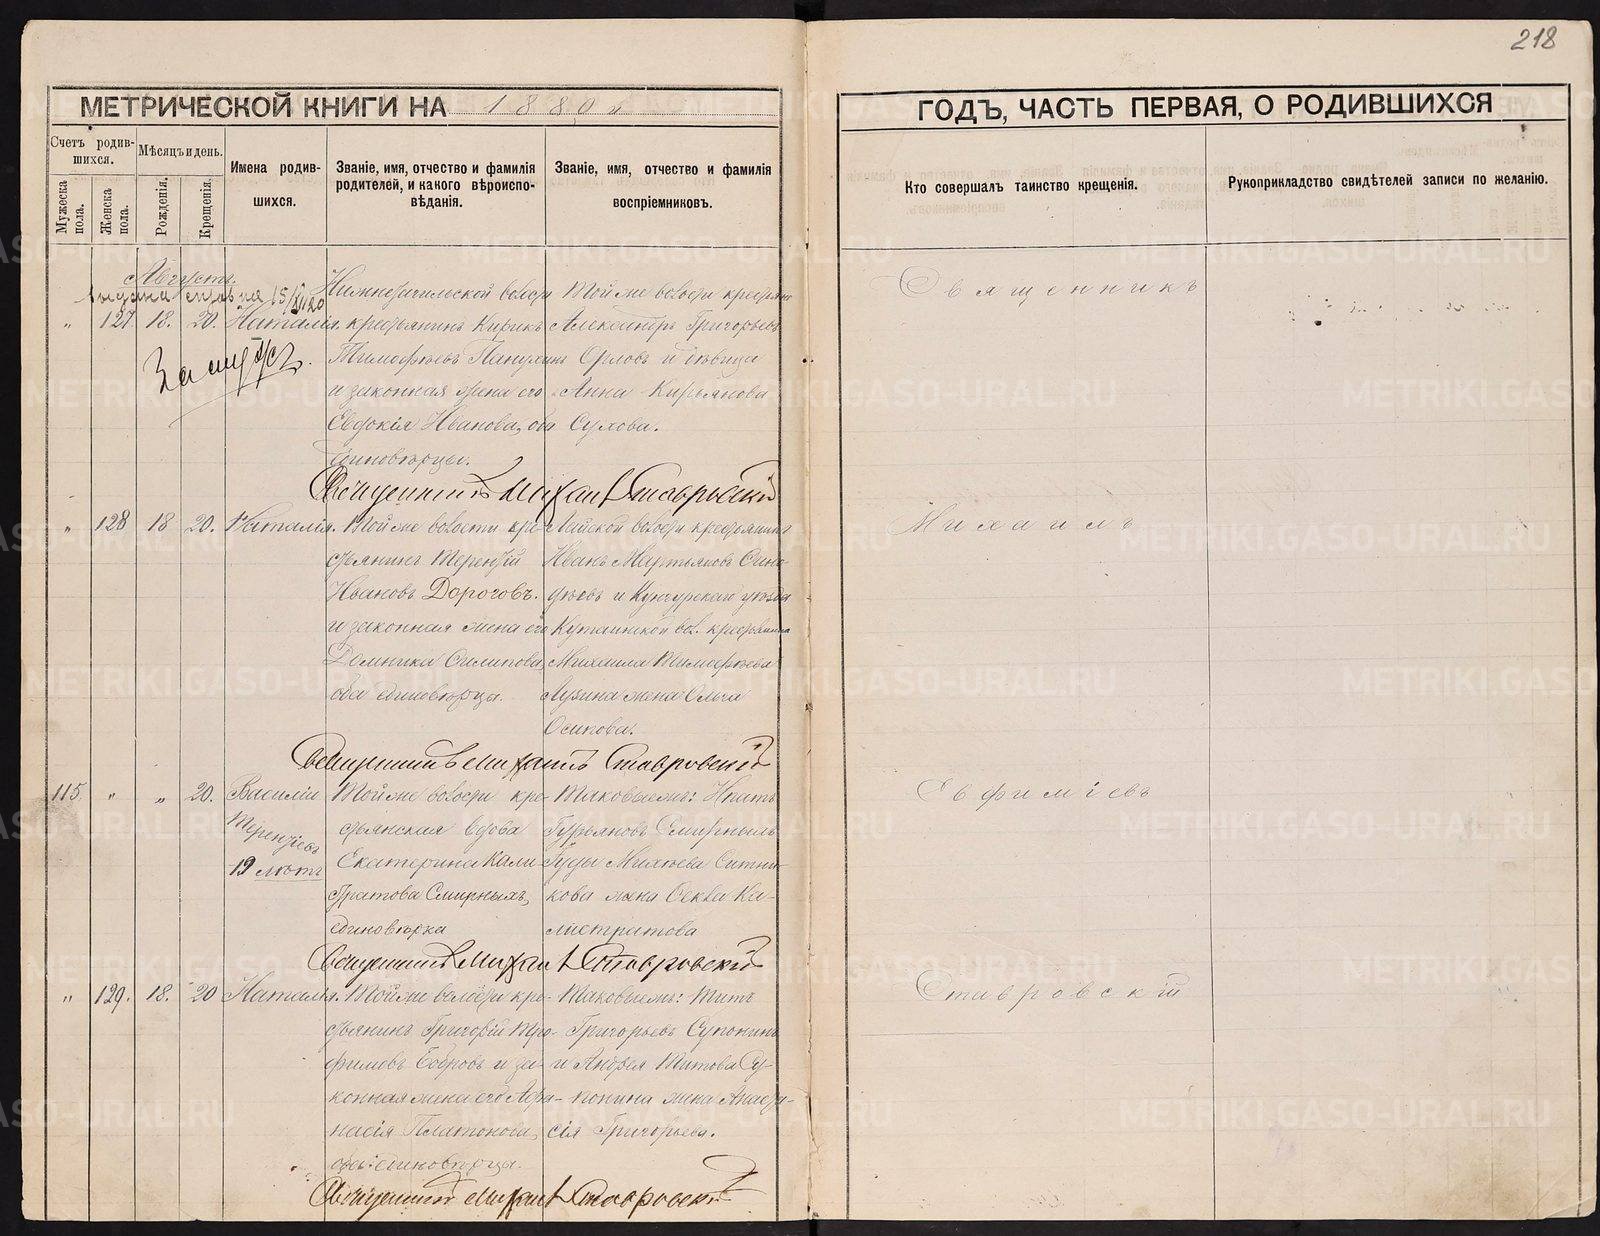 218
МЕТРИЧЕСКОЙ КНИГИ НА 1880 г
ГОДЪ, ЧАСТЬ ПЕРВАЯ, О РОДИВШИХСЯ
Счетъ родив-
шихся.
Мужеска
пола.
Женска
пола.
Мѣсяцъ и день.
Рожденія.
Крещенія.
Имена родив-
шихся.
Званіе, имя, отчество и фамилія
родителей, и какого вѣроиспо-
вѣданія.
Званіе, имя, отчество и фамилія
воспріемниковъ.
Кто совершалъ таинство крещенія.
Рукоприкладство свидѣтелей записи по желанію.
Августъ.
„ 127 18. 20. Наталія.
крестьянинъ Кирикъ
Тимофѣевъ
и законная жена его
Евдокія Иванова, оба
единовѣрцы.
Той же волости
Александръ Григорьевъ
Орловъ и дѣвица
Анна Кирьянова
Сухова.
Священникъ Михаил Ставровский
„ 128 18 20. Наталія.
Той же волости кре-
стьянинъ Терентій
Ивановъ Дороговъ.
и законная жена его
Домника Филипова
оба единовѣрцы.
волости крестьянинъ
Иванъ Мартьяновъ
и Кунгурскаго уѣзда
Михаила Тимофѣева
жена Ольга
Осипова.
Священникъ Михаилъ Ставровский
115 „ „ 20. Василій
Терентьевъ
19 лѣтъ
Той же волости кре-
стьянская вдова
Екатерина Кали-
стратова Смирныхъ,
единовѣрка
Таковыежъ: Ипатъ
Гурьяновъ Смирныхъ
Михѣева Ситни-
кова жена Фекла Ка-
листратова
Священникъ Михаил Ставровский
„ 129. 18. 20 Наталья.
Той же волости кре-
стьянинъ Григорій Тро-
фимовъ Бобровъ и за-
конная жена его Афа-
насія Платонова,
оба единовѣрцы.
Таковыежъ: Титъ
Григорьевъ Супонинъ
и Андрея Титова Су-
понина жена Анаста-
сія Григорьева.
Священникъ Михаил Ставровский
Священникъ
Михаилъ
Евфиміевъ
Ставровскій
METRIKI.GASO-URAL.RU